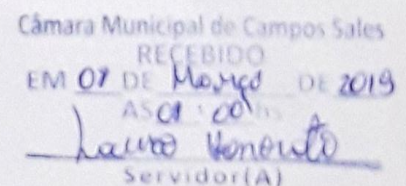 Câmara Municipal de Campos Sales
RECEBIDO
EM 07 DE Março DE 2019
AS 01:00 hs
Servidor(A)